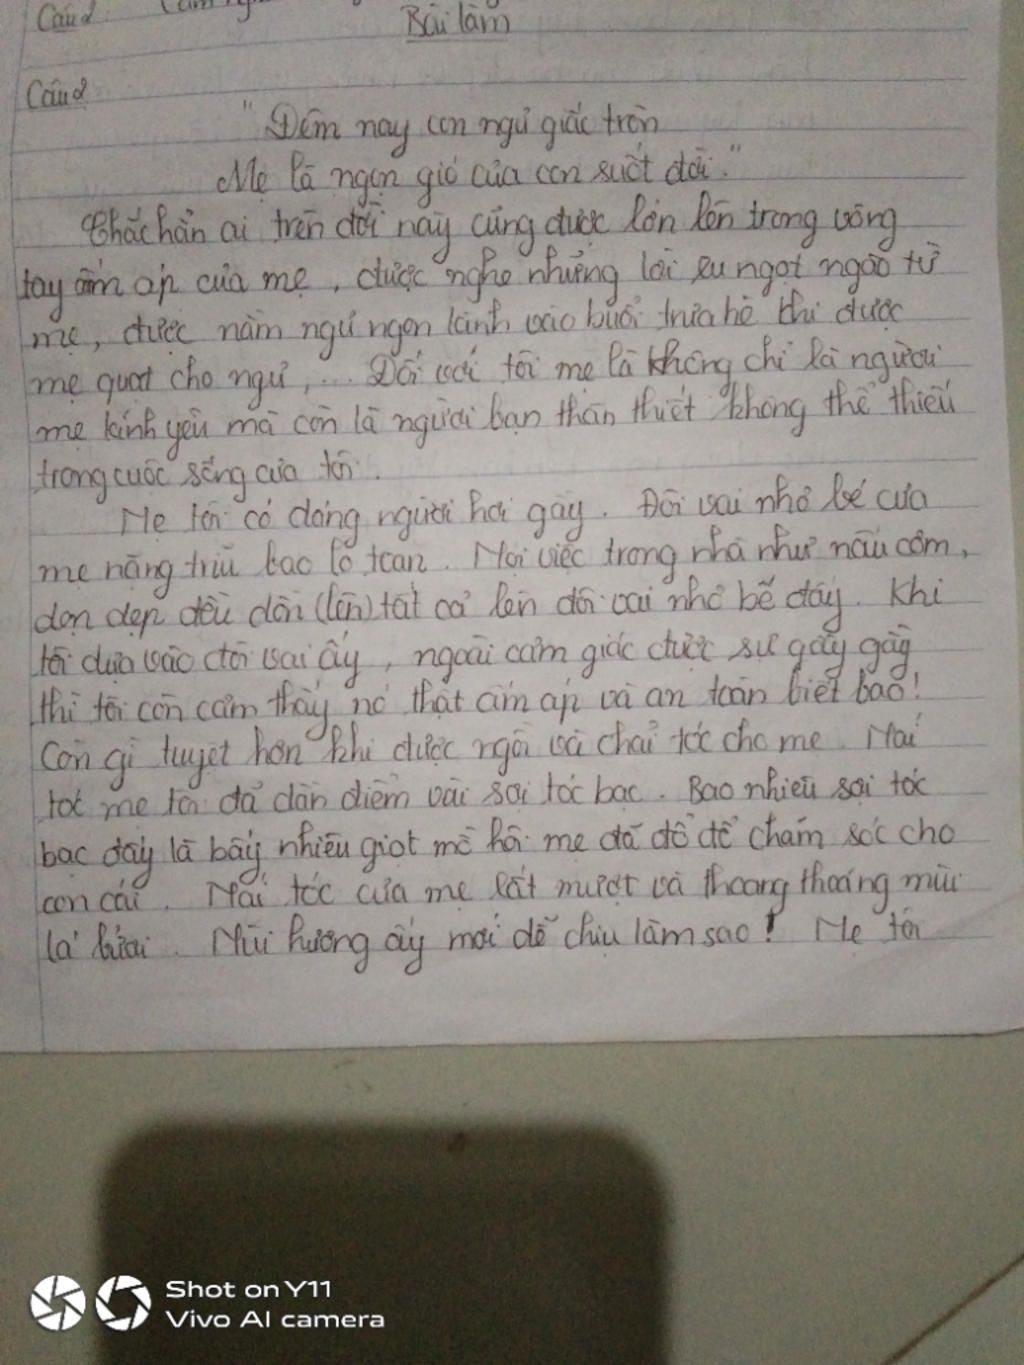 Câu 2
Bài làm
Câu 2
"Đêm nay con ngủ giấc tròn
Mẹ là ngọn gió của con suốt đời."
Chắc hẳn ai trên đời này cũng được lớn lên trong vòng
tay ấm áp của mẹ, được nghe những lời ru ngọt ngào từ
mẹ, được nằm ngủ ngon lành vào buổi trưa hè khi được
mẹ quạt cho ngủ,... Đối với tôi mẹ là không chỉ là người
mẹ kính yêu mà còn là người bạn thân thiết không thể thiếu
trong cuộc sống của tôi.
Mẹ tôi có dáng người hơi gầy. Đôi vai nhỏ bé của
mẹ nặng trĩu bao lo toan. Mọi việc trong nhà như nấu cơm,
dọn dẹp đều dồn (lên) tất cả lên đôi vai nhỏ bé đấy. Khi
tôi dựa vào đôi vai ấy, ngoài cảm giác được sự gầy gầy
thì tôi còn cảm thấy nó thật ấm áp và an toàn biết bao!
Còn gì tuyệt hơn khi được ngồi và chải tóc cho mẹ. Mái
tóc mẹ tôi đã dần điểm vài sợi tóc bạc. Bao nhiêu sợi tóc
bạc đấy là bấy nhiêu giọt mồ hôi mẹ đã đổ để chăm sóc cho
con cái. Mái tóc của mẹ rất mượt và thoang thoảng mùi
lá bưởi. Mùi hương ấy mới dễ chịu làm sao! Mẹ tôi
Shot on Y11
Vivo AI camera